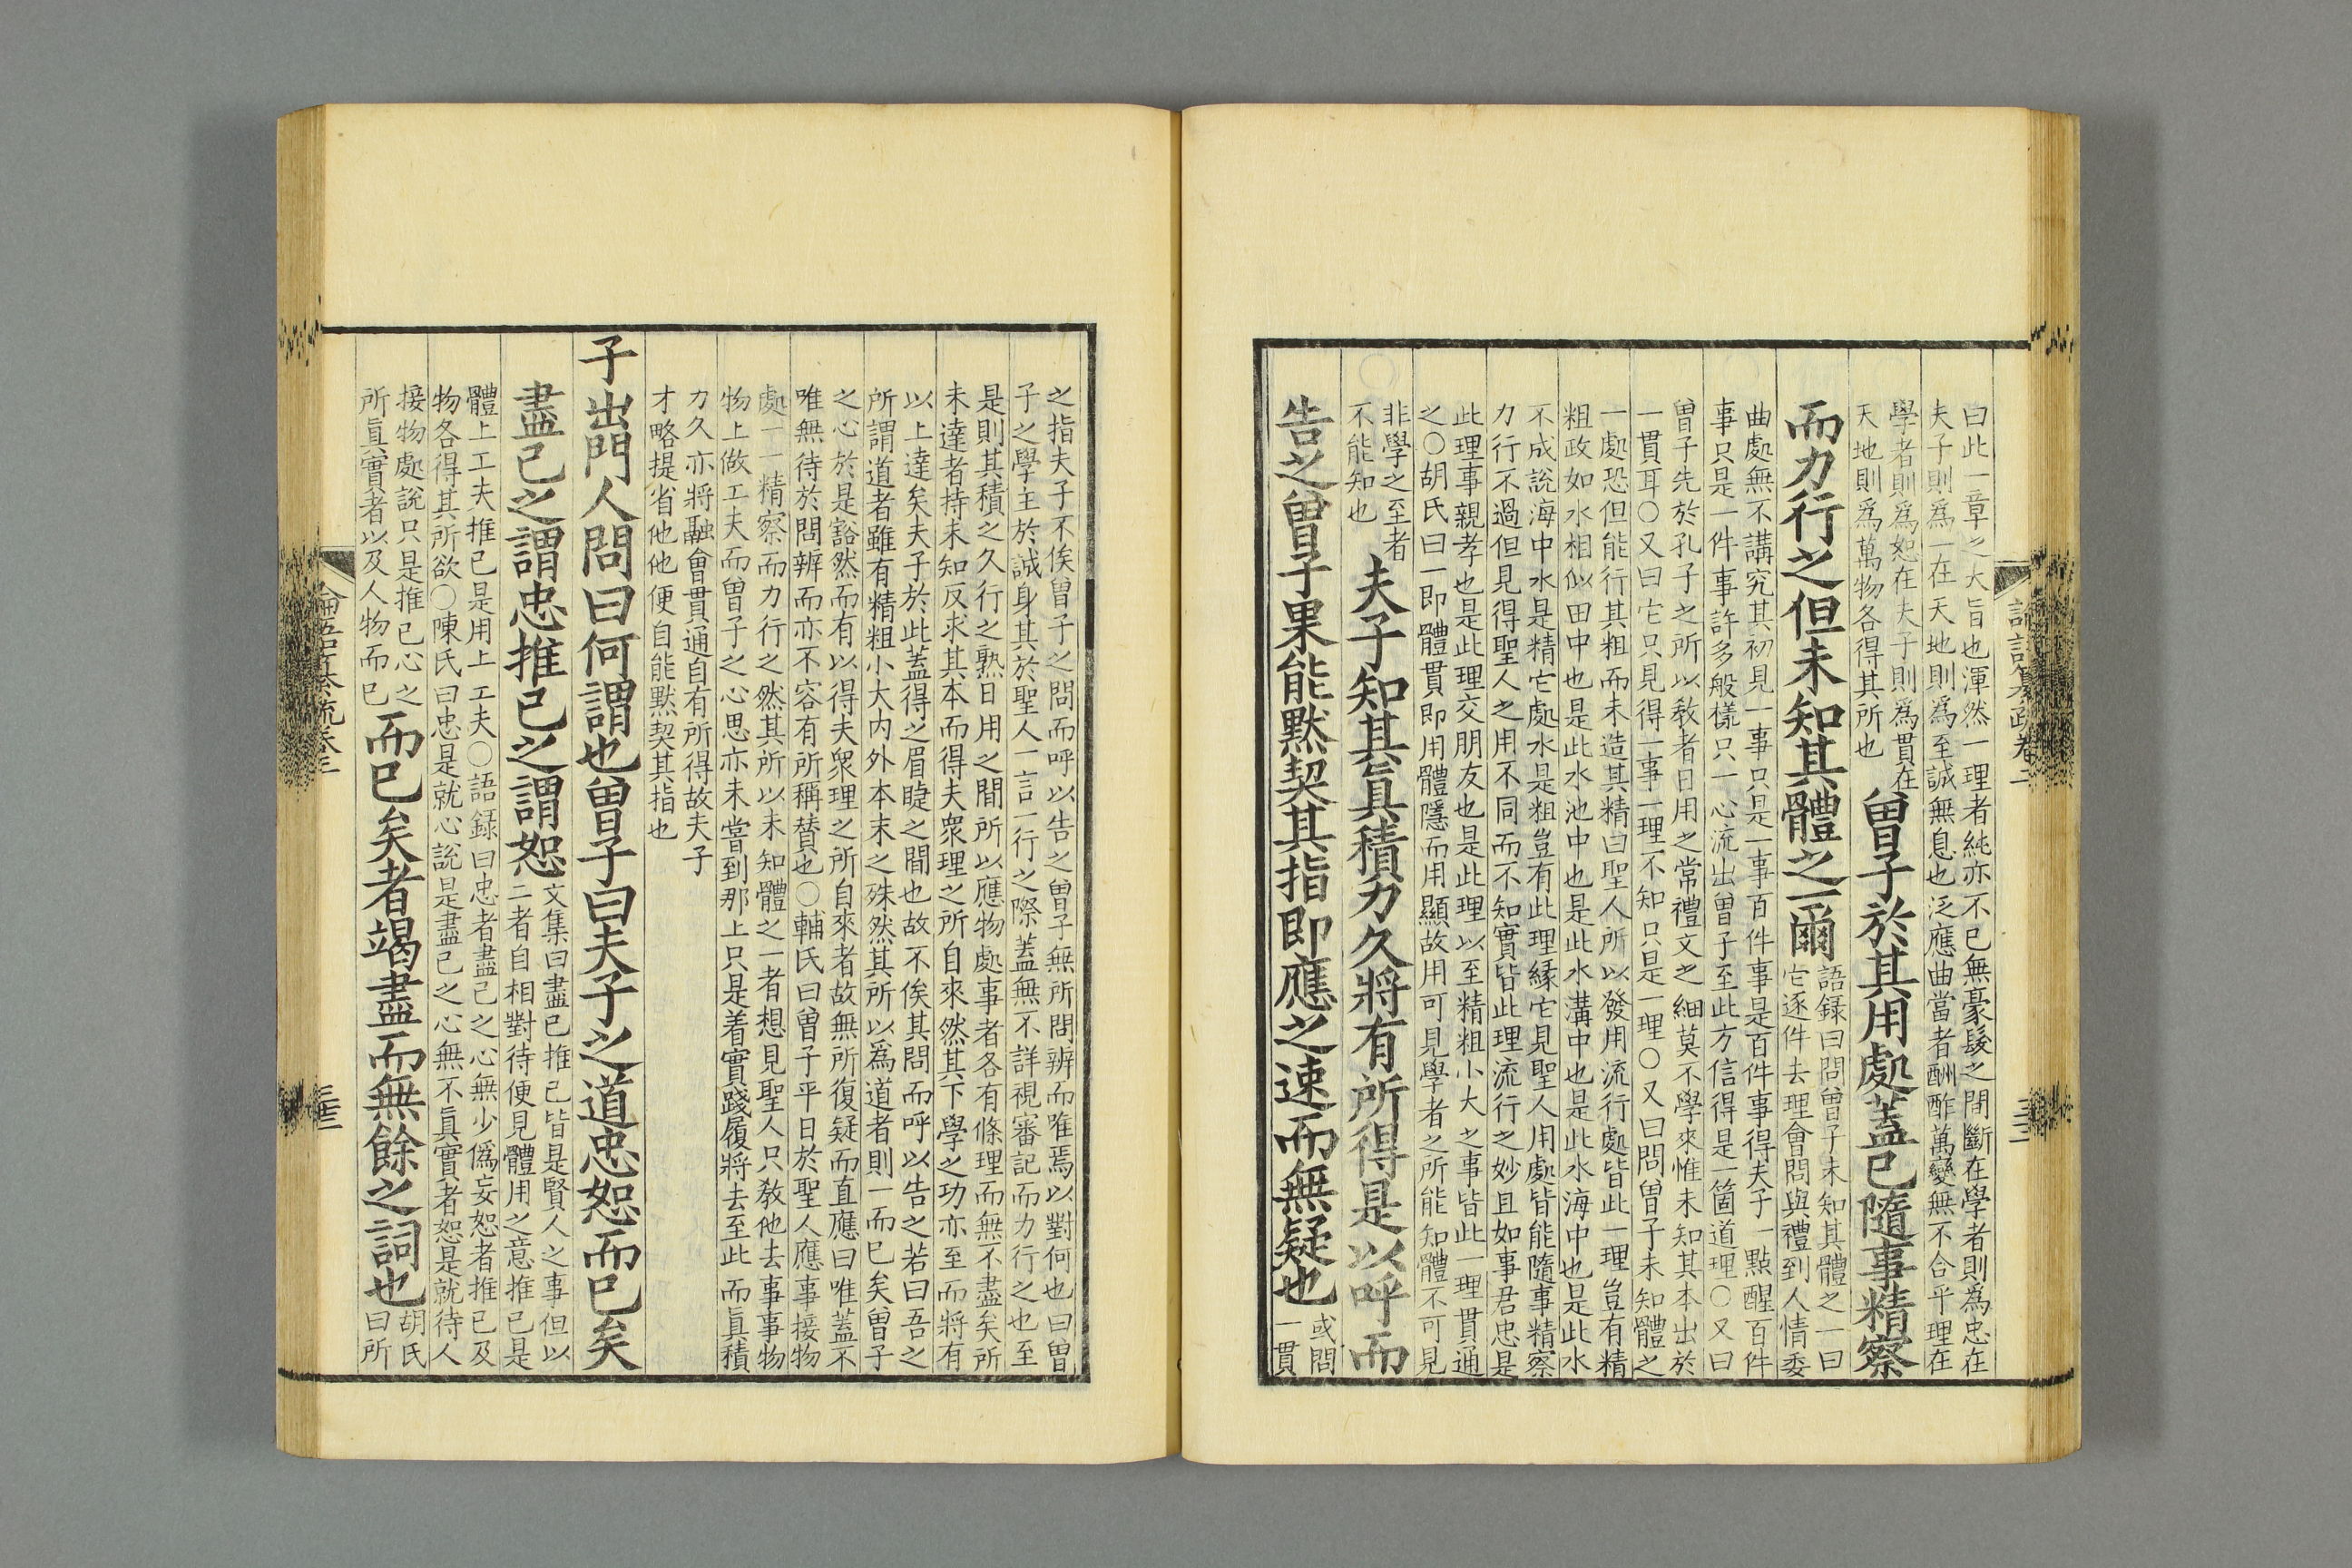 曰此一章之大旨也渾然一理者純亦不已無毫髮之間斷在學者則為忠在
夫子則為一在天地則為至誠無息也泛應曲當者酬酢萬變無不合乎理在
學者則為恕在夫子則為貫在
天地則為萬物各得其所也
曾子於其用處蓋已隨事精察
而力行之但未知其體之一爾
語録曰問曾子未知其體之一曰
它逐件去理會問與禮到人情委
曲處無不講究其初見一事只是一事百件事是百件事得夫子一點醒百件
事只是一件事許多般樣只一心流出曾子至此方信得是一箇道理○又曰
曾子先於孔子之所以敎者日用之常禮文之細莫不學來惟未知其本出於
一貫耳○又曰它只見得一事一理不知只是一理○又曰問曾子未知體之
一處恐但能行其粗而未造其精曰聖人所以發用流行處皆此一理豈有精
粗政如水相似田中也是此水池中也是此水溝中也是此水海中也是此水
不成說海中水是精它處水是粗豈有此理縁它見聖人用處皆能隨事精察
力行不過但見得聖人之用不同而不知實皆此理流行之妙且如事君忠是
此理事親孝也是此理交朋友也是此理以至精粗小大之事皆此一理貫通
之○胡氏曰一即體貫即用體隱而用顯故用可見學者之所能知體不可見
非學之至者
不能知也
夫子知其眞積力久將有所得是以呼而
告之曾子果能默契其指即應之速而無疑也
或問
一貫
之指夫子不俟曾子之問而呼以告之曾子無所問辨而唯焉以對何也曰曾
子之學主於誠身其於聖人一言一行之際蓋無不詳視審記而力行之也至
是則其積之久行之熟日用之間所以應物處事者各有條理而無不盡矣所
未達者持未知反求其本而得夫衆理之所自來然其下學之功亦至而將有
以上達矣夫子於此蓋得之眉睫之間也故不俟其問而呼以告之若曰吾之
所謂道者雖有精粗小大内外本末之殊然其所以為道者則一而已矣曾子
之心於是豁然而有以得夫衆理之所自來者故無所復疑而直應曰唯蓋不
唯無待於問辨而亦不容有所稱贊也○輔氏曰曾子平日於聖人應事接物
處一一精察而力行之然其所以未知體之一者想見聖人只敎他去事事物
物上做工夫而曾子之心思亦未嘗到那上只是着實踐履將去至此而眞積
力久亦將融會貫通自有所得故夫子
才略提省他他便自能默契其指也
子出門人問曰何謂也曾子曰夫子之道忠恕而已矣
盡己之謂忠推己之謂恕
文集曰盡己推己皆是賢人之事但以
二者自相對待便見體用之意推己是
體上工夫推己是用上工夫○語録曰忠者盡己之心無少僞妄恕者推己及
物各得其所欲○陳氏曰忠是就心說是盡己之心無不眞實者恕是就待人
接物處說只是推己心之
所眞實者以及人物而已
而已矣者竭盡而無餘之詞也
胡氏
曰所
論語纂疏卷二
三十三